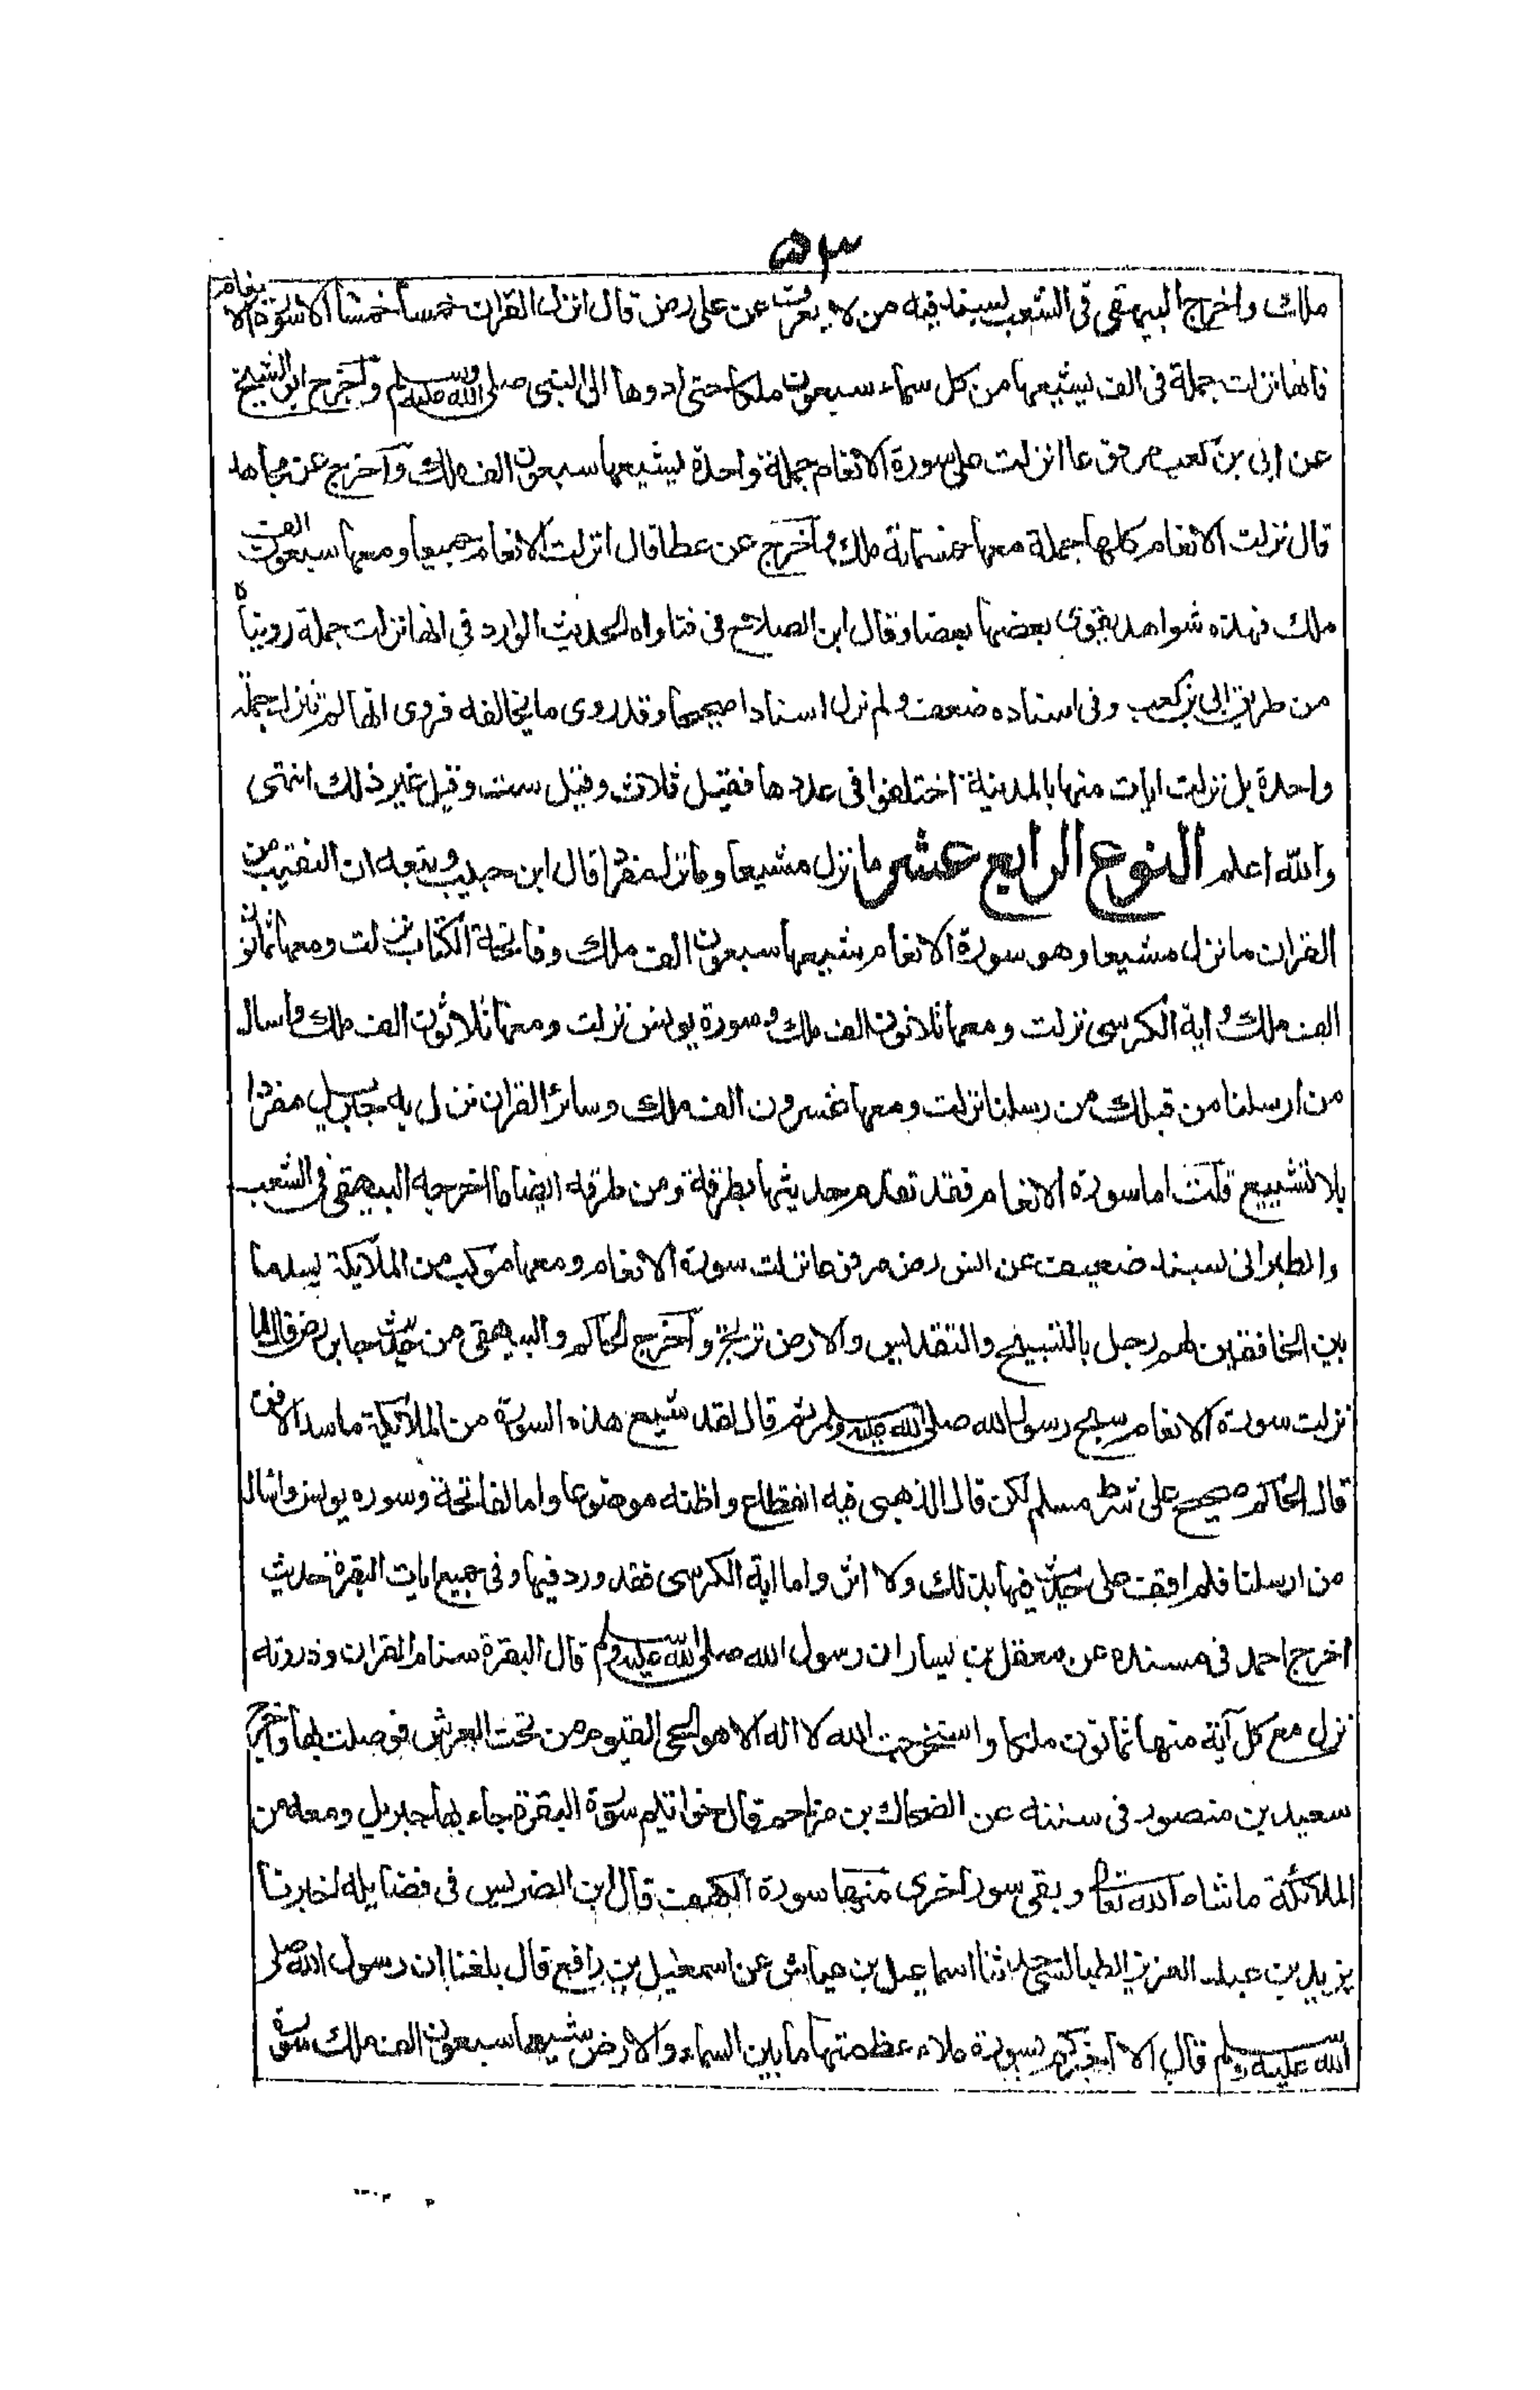 ٥٣
ملك واخرج البيهقي في الشعب بسند فيه من لا يعرف عن علي رض قال انزل القران خمسا خمسا الا سورة الانعام
فانها نزلت جملة في الف يشيعها من كل سماء سبعون ملكا حتى ادوها الى النبي صلى الله عليه وسلم واخرج ابو الشيخ
عن ابي بن كعب مرفوعا انزلت على سورة الانعام جملة واحدة يشيعها سبعون الف ملك واخرج عن مجاهد
قال نزلت الانعام كلها جملة معها خمسمائة ملك واخرج عن عطا قال انزلت الانعام جميعا ومعها سبعون الف
ملك فهذه شواهد يقوى بعضها بعضا وقال ابن الصلاح في فتاواه الحديث الوارد في انها نزلت جملة رويناه
من طريق ابي بن كعب وفي اسناده ضعف ولم نرله اسنادا صحيحا وقد روى ما يخالفه فروى انها لم تنزل جملة
واحدة بل نزلت ايات منها بالمدينة اختلفوا في عددها فقيل ثلاث وقيل ست وقيل غير ذلك انتهى
والله اعلم النوع الرابع عشر ما نزل مشيعا وما نزل مفردا قال ابن حبيب وتبعه ابن النقيب من
القران ما نزل مشيعا وهو سورة الانعام شيعها سبعون الف ملك وفاتحة الكتاب نزلت ومعها ثمانون
الف ملك واية الكرسي نزلت ومعها ثلاثون الف ملك وسورة يونس نزلت ومعها ثلاثون الف ملك واسال
من ارسلنا من قبلك من رسلنا نزلت ومعها عشرون الف ملك وسائر القران نزل به جبريل مفردا
بلا تشييع قلت اما سورة الانعام فقد تقدم حديثها بطرقه ومن طرقه ايضا ما اخرجه البيهقي في الشعب
والطبراني بسند ضعيف عن انس رض مرفوعا نزلت سورة الانعام ومعها موكب من الملائكة يسد ما
بين الخافقين لهم زجل بالتسبيح والتقديس والارض ترتج واخرج الحاكم والبيهقي من حديث جابر رض قال لما
نزلت سورة الانعام سبح رسول الله صلى الله عليه وسلم ثم قال لقد شيع هذه السورة من الملائكة ما سد الافق
قال الحاكم صحيح على شرط مسلم لكن قال الذهبي فيه انقطاع واظنه موضوعا واما الفاتحة وسورة يونس واسال
من ارسلنا فلم اقف على حديث فيها بذلك ولا اثر واما اية الكرسي فقد ورد فيها وفي جميع ايات البقرة حديث
اخرج احمد في مسنده عن معقل بن يسار ان رسول الله صلى الله عليه وسلم قال البقرة سنام القران وذروته
نزل مع كل آية منها ثمانون ملكا واستخرجت الله لا اله الا هو الحي القيوم من تحت العرش فوصلت بها واخرج
سعيد بن منصور في سننه عن الضحاك بن مزاحم قال خواتيم سورة البقرة جاء بها جبريل ومعه من
الملائكة ما شاء الله تعالى وبقي سور اخرى منها سورة الكهف قال ابن الضريس في فضايله اخبرنا
يزيد بن عبد العزيز الطيالسي حدثنا اسماعيل بن عياش عن اسمعيل بن رافع قال بلغنا ان رسول الله صلى
الله عليه وسلم قال الا اخبركم بسورة ملاء عظمتها ما بين السماء والارض شيعها سبعون الف ملك سورة